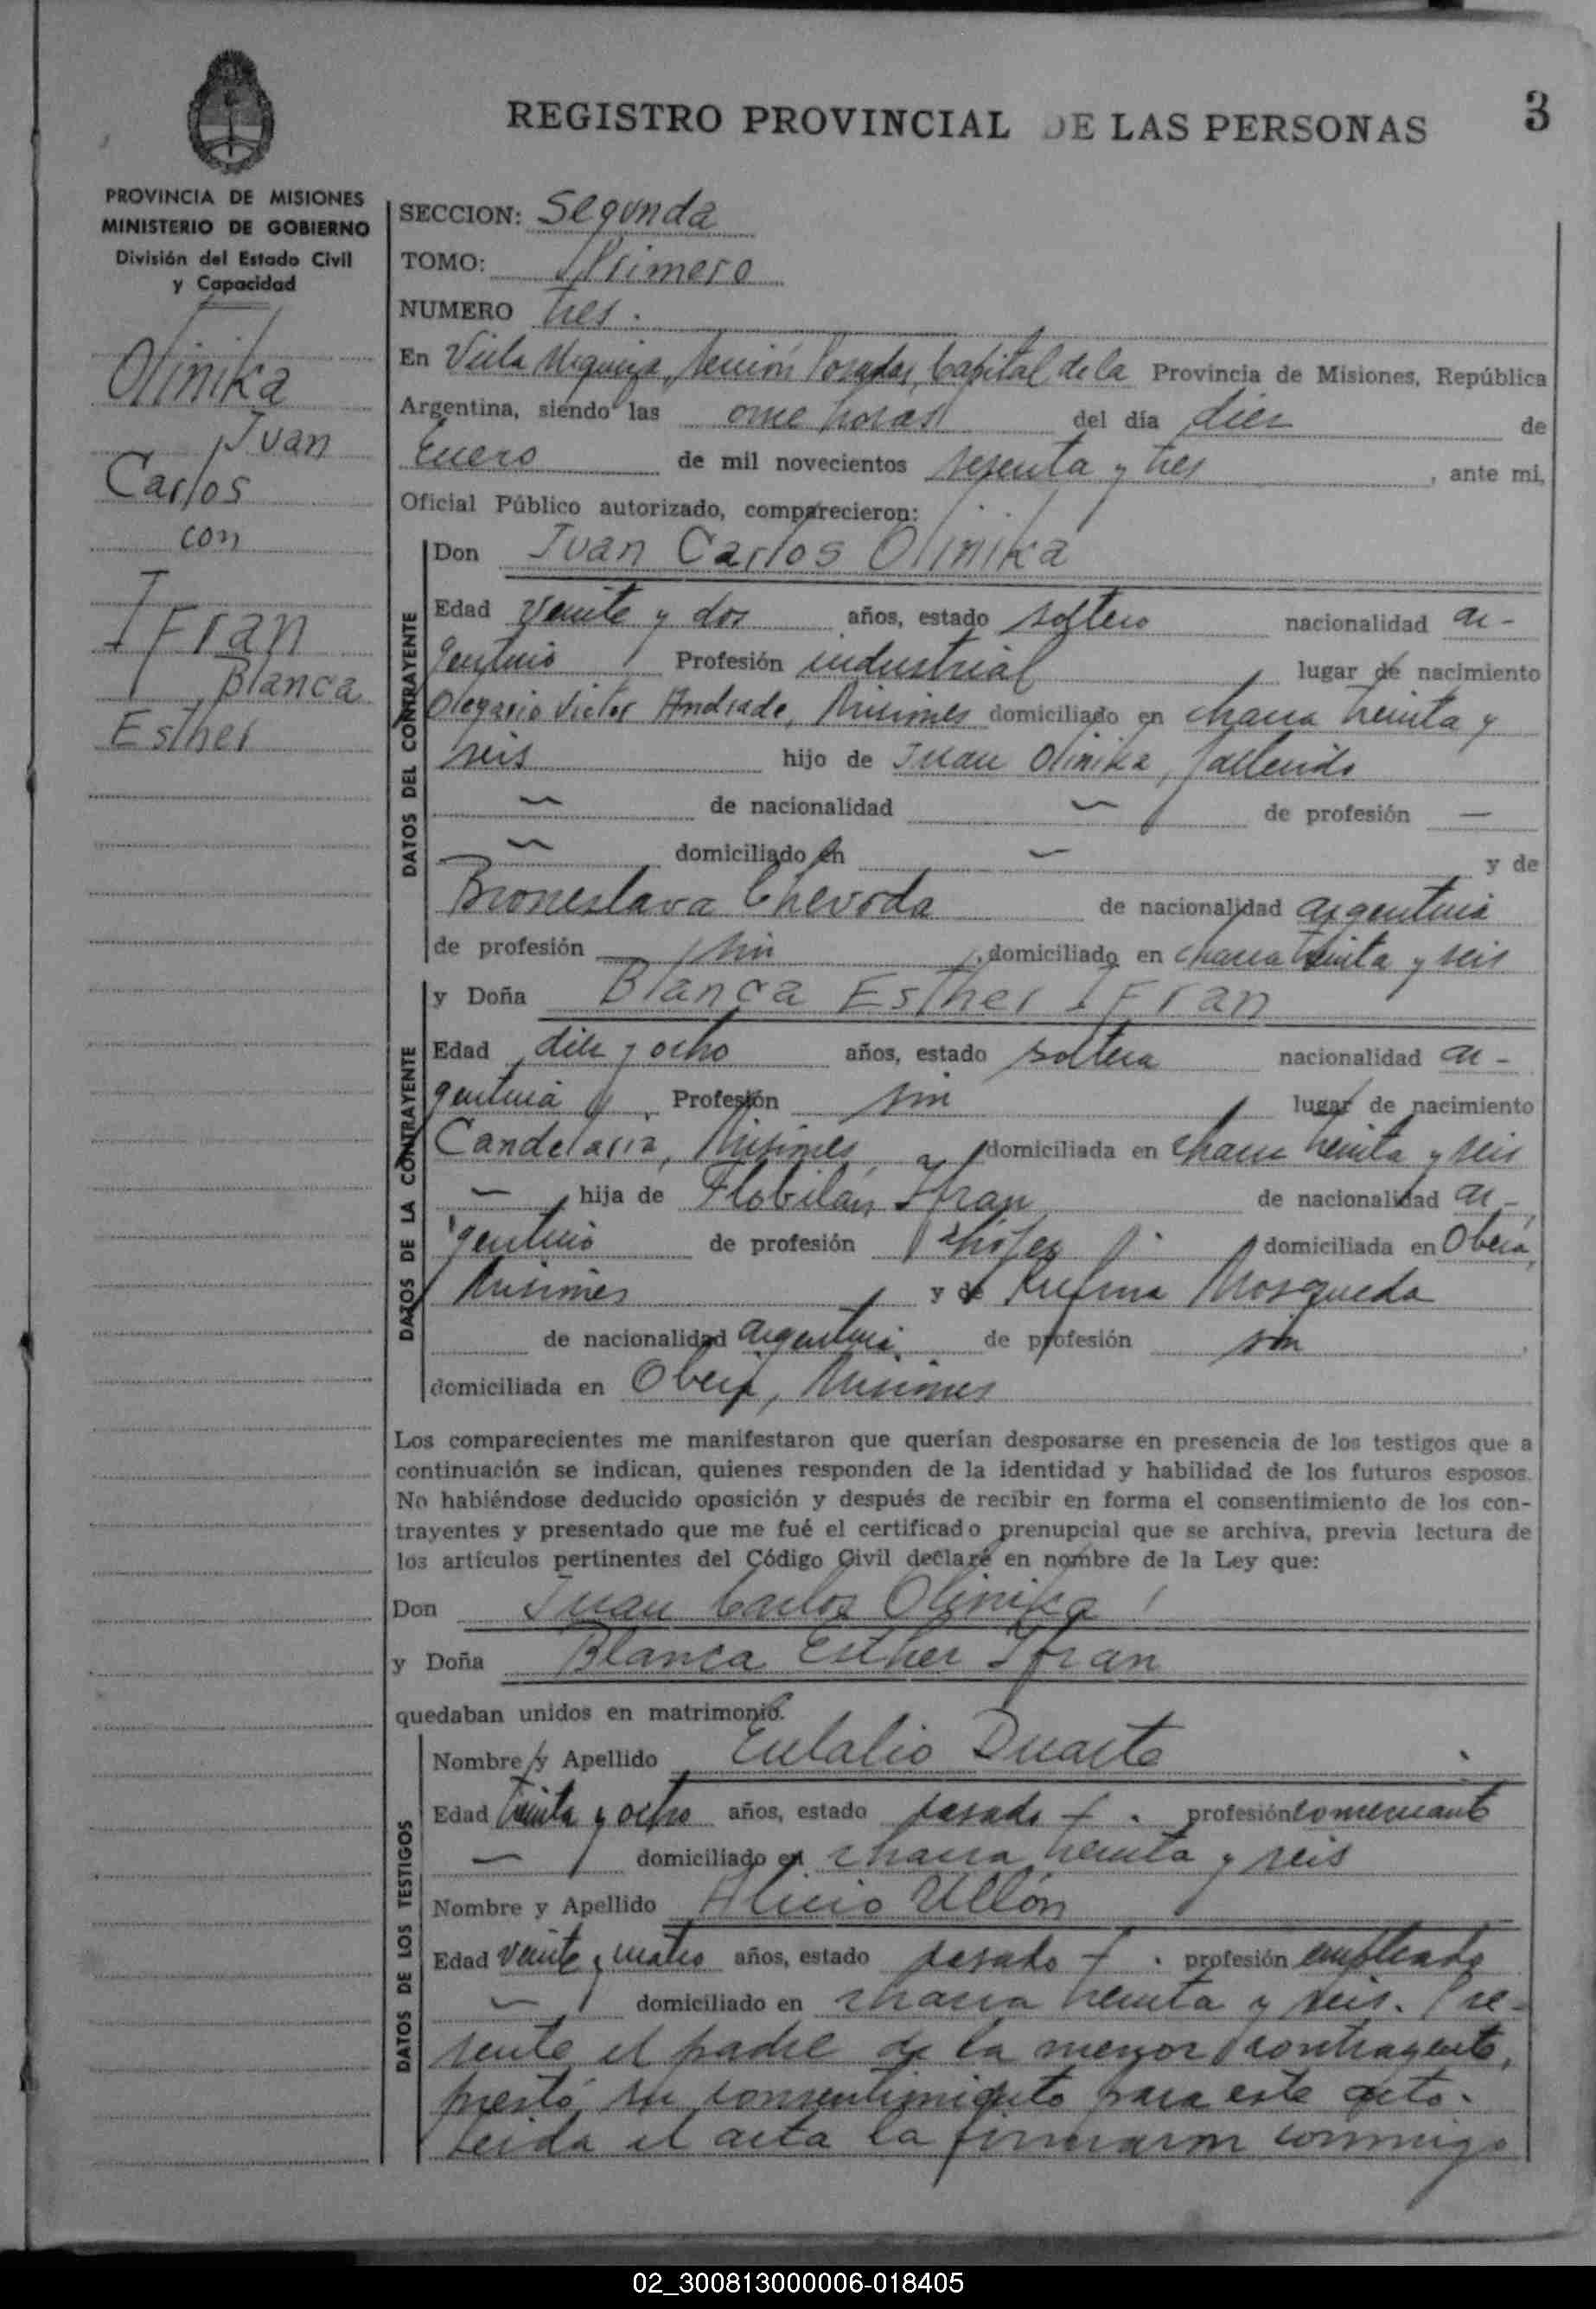 REGISTRO PROVINCIAL DE LAS PERSONAS
3
PROVINCIA DE MISIONES
MINISTERIO DE GOBIERNO
División del Estado Civil
y Capacidad
Olinika
Juan
Carlos
con
Ifran
Blanca
Esther
SECCION: Segunda
TOMO: Primero
NUMERO tres.
En Villa Urquiza, sección Posadas, Capital de la Provincia de Misiones, República
Argentina, siendo las once horas del día diez de
Enero de mil novecientos sesenta y tres, ante mi,
Oficial Público autorizado, comparecieron:
DATOS DEL CONTRAYENTE
Don Juan Carlos Olinika
Edad veinte y dos años, estado soltero nacionalidad ar-
gentino Profesión industrial lugar de nacimiento
Olegario Victor Andrade, Misiones domiciliado en chacra treinta y
seis hijo de Juan Olinika, fallecido
— de nacionalidad — de profesión —
— domiciliado en — y de
Broneslava Chevoda de nacionalidad argentina
de profesión sin, domiciliado en chacra treinta y seis
DATOS DE LA CONTRAYENTE
y Doña Blanca Esther Ifran
Edad diez y ocho años, estado soltera nacionalidad ar-
gentina Profesión sin lugar de nacimiento
Candelaria, Misiones domiciliada en chacra treinta y seis
— hija de Flobilán Ifran de nacionalidad ar-
gentino de profesión chófer domiciliada en Oberá,
Misiones y de Rufina Mosqueda
de nacionalidad argentina de profesión sin
domiciliada en Oberá, Misiones
Los comparecientes me manifestaron que querían desposarse en presencia de los testigos que a
continuación se indican, quienes responden de la identidad y habilidad de los futuros esposos.
No habiéndose deducido oposición y después de recibir en forma el consentimiento de los con-
trayentes y presentado que me fué el certificado prenupcial que se archiva, previa lectura de
los artículos pertinentes del Código Civil declaré en nombre de la Ley que:
Don Juan Carlos Olinika
y Doña Blanca Esther Ifran
quedaban unidos en matrimonio.
DATOS DE LOS TESTIGOS
Nombre y Apellido Eulalio Duarte
Edad treinta y ocho años, estado casado. profesión comerciante
— domiciliado en chacra treinta y seis
Nombre y Apellido Alicio Ullón
Edad veinte y cuatro años, estado casado. profesión empleado
— domiciliado en chacra treinta y seis. Pre-
sente el padre de la menor contrayente,
prestó su consentimiento para este acto.
Leída el acta la firmaron conmigo
02_300813000006-018405